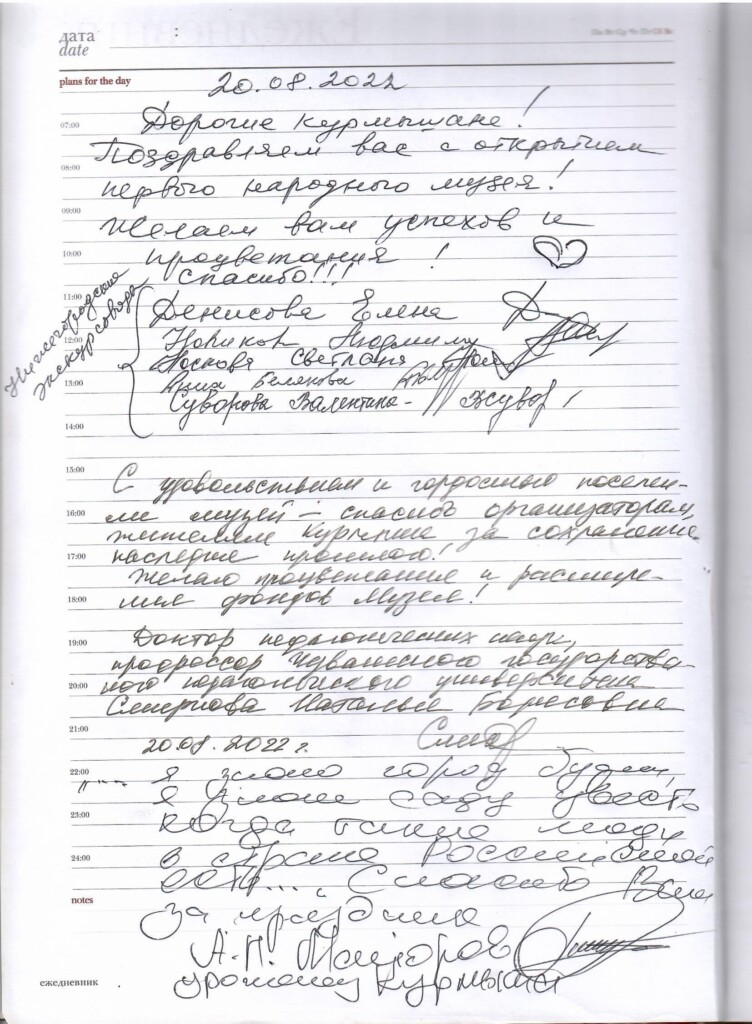 дата
date
plans for the day
20.08.2022
07:00
Дорогие курмышане!
Поздравляем вас с открытием
08:00
первого народного музея!
09:00
Желаем вам успехов и
10:00
процветания!
Спасибо!!!
Нижегородские
экскурсоводы
11:00
Денисова Елена
12:00
Людмила
Носкова Светлана
13:00
Беленова
Суворова Валентина - Жсувор
14:00
15:00
С удовольствием и гордостью посели-
16:00
ли музей – спасибо организаторам,
жителям Курмыша за сохранение
17:00
наследия прошлого!
Желаю процветания и расшире-
18:00
ния фондов музея!
19:00
Доктор педагогических наук,
профессор Чувашского государствен-
20:00
ного педагогического университета
Смирнова Наталья Борисовна
21:00
20.08.2022 г.
22:00
"... я знаю город будет,
я знаю саду цвесть
23:00
когда такие люди
24:00
в стране Российской
есть... Спасибо Вам
notes
за праздник
А.П. Майоров
ежедневник
уроженец Курмыша